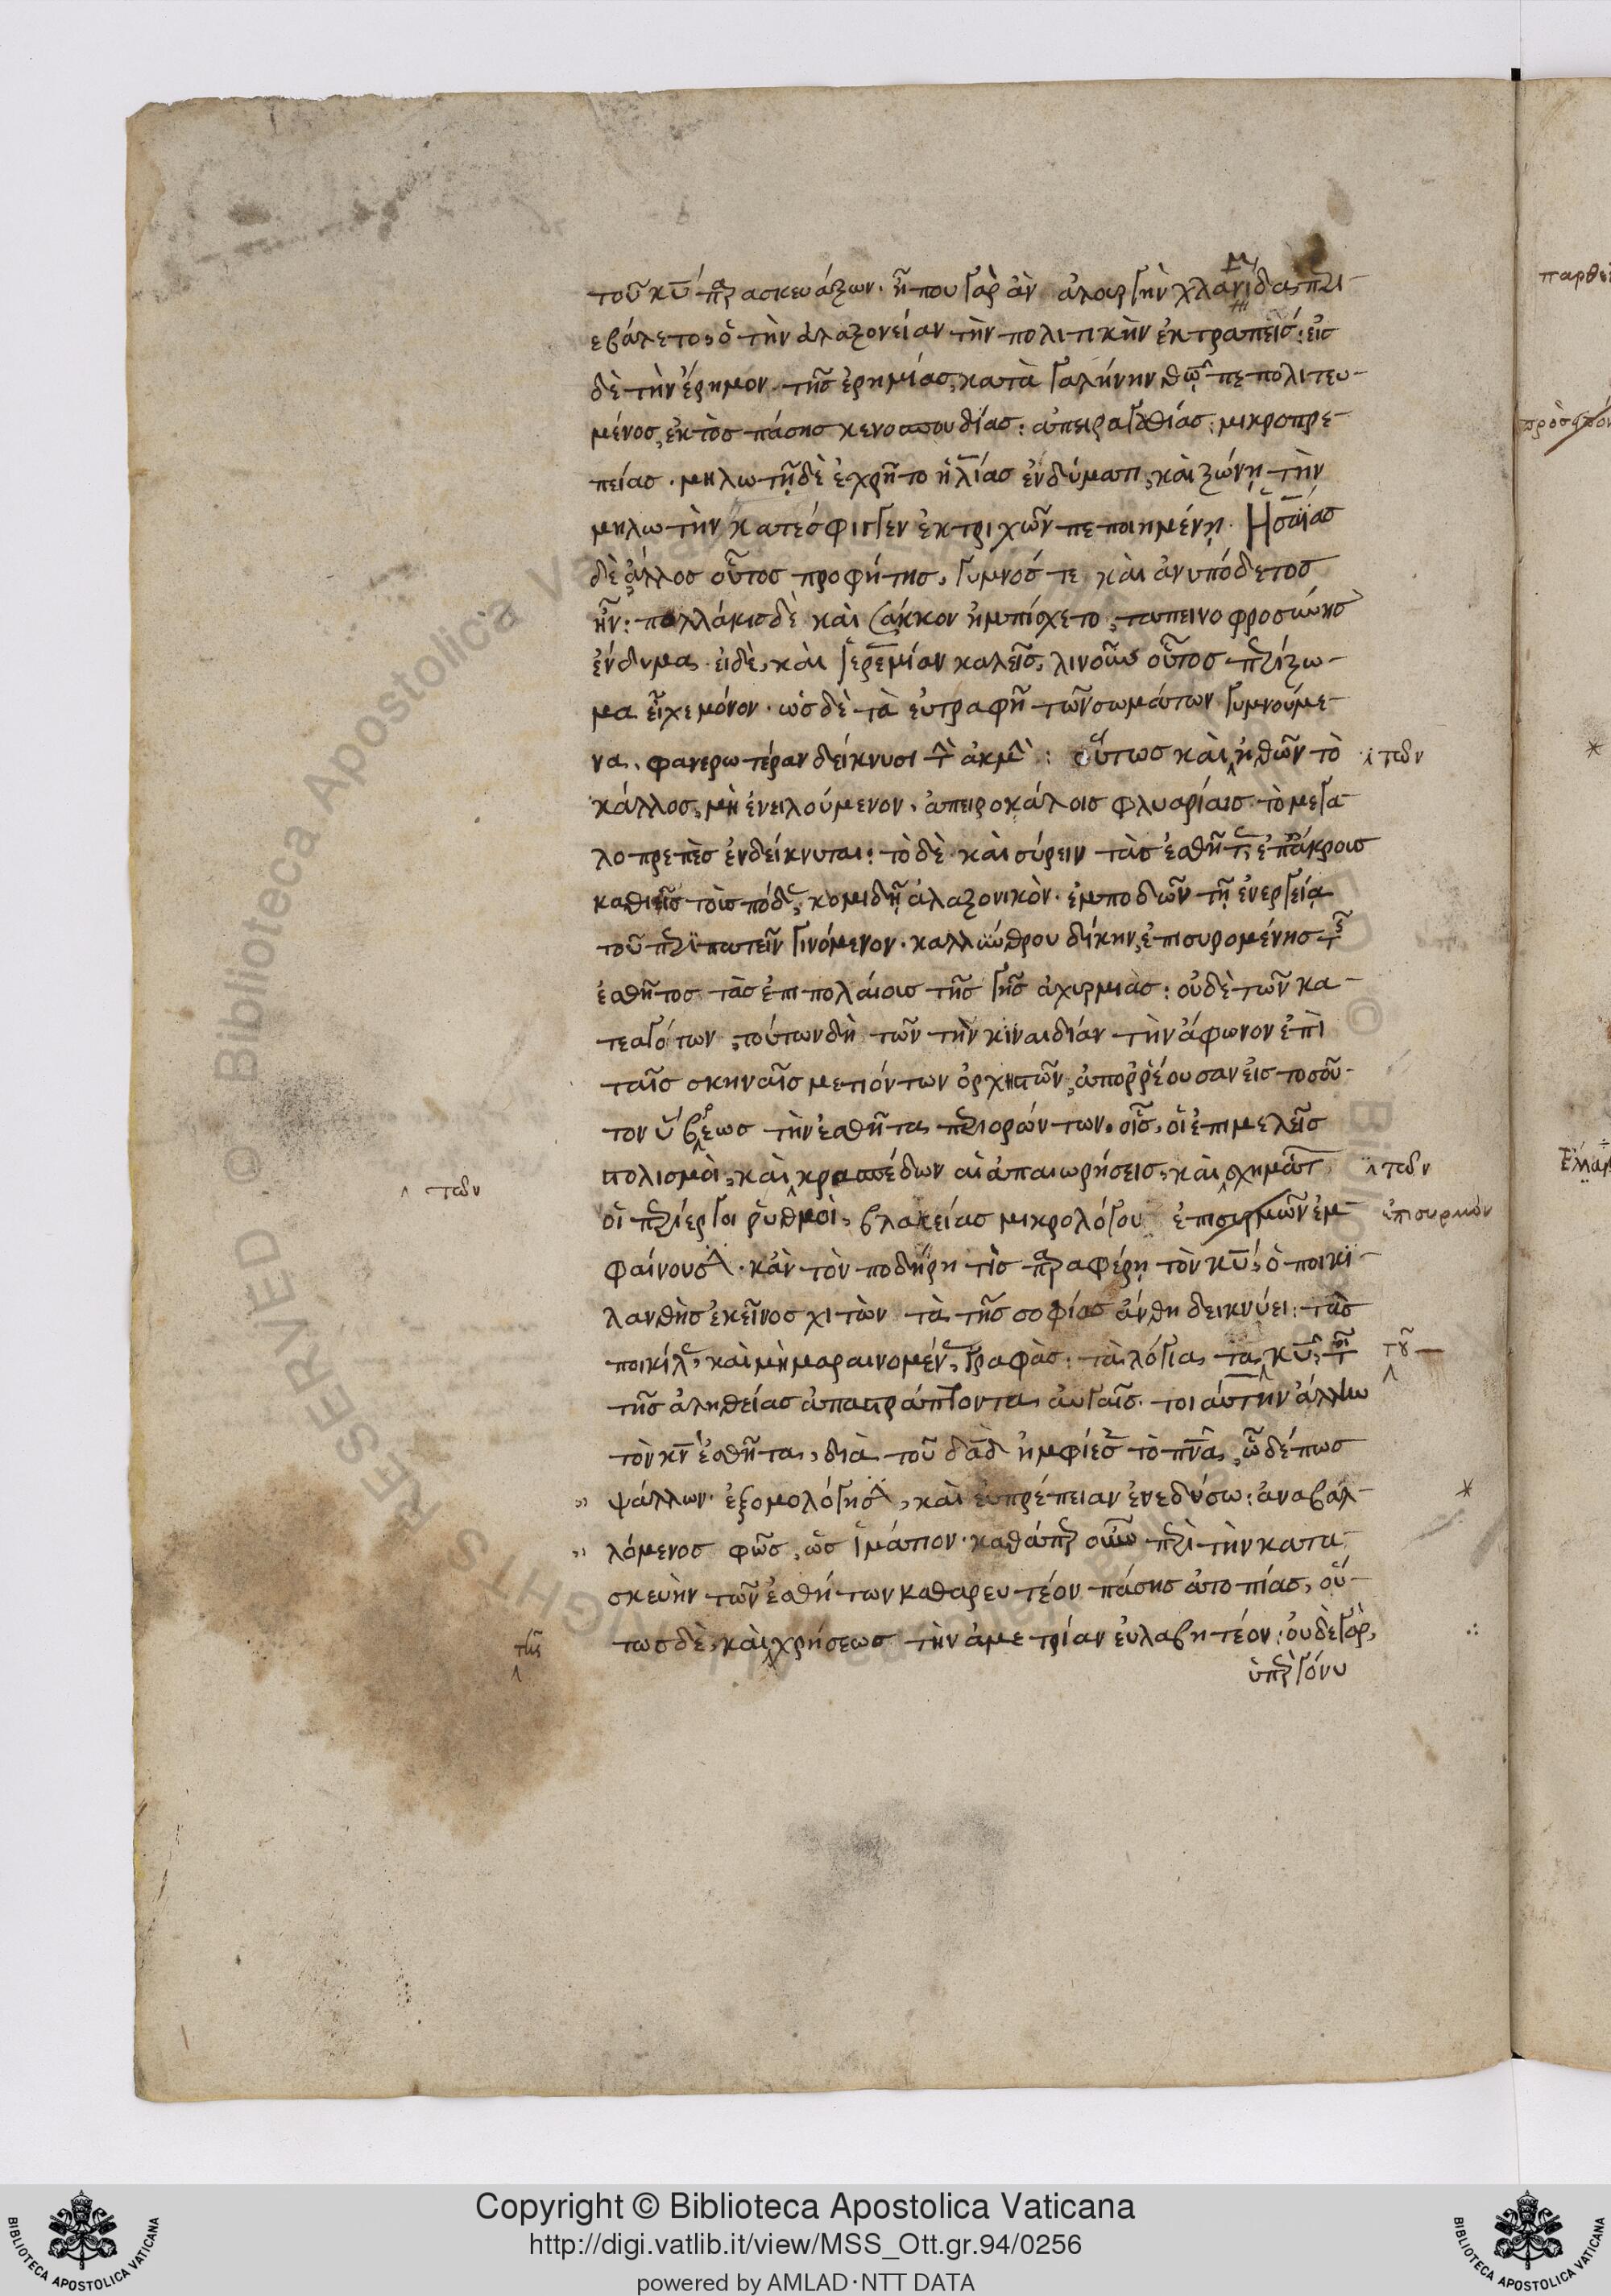 τοῦ κ̅υ̅ παρασκευάζων· ἤπου γὰρ ἂν ἁλουργὴν χλανίδα περι-
εβάλετο, ὁ τὴν ἀλαζονείαν τὴν πολιτικὴν ἐκτραπείς: εἰς
δὲ τὴν ἔρημον τῆς ἐρημίας, κατὰ γαλήνην θῶ πεπολιτευ-
μένος, ἐκτὸς πάσης κενοσπουδίας: ἀπειραγαθίας: μικροπρε-
πείας· μηλωτῇ δὲ ἐχρῆτο ἠλίας ἐνδύματι, καὶ ζώνῃ τὴν
μηλωτὴν κατέσφιγγεν ἐκ τριχῶν πεποιημένῃ. Ἡσαΐας
δὲ ἄλλος οὗτος προφήτης, γυμνός τε καὶ ἀνυπόδετος
ἦν: πολλάκις δὲ καὶ σάκκον ἠμπίσχετο, ταπεινοφροσύνης
ἔνδυμα· εἰ δὲ, καὶ ἱερεμίαν καλεῖς, λινοῦν οὗτος περίζω-
μα εἶχε μόνον· ὡς δὲ τὰ εὐτραφῆ τῶν σωμάτων γυμνούμε-
να, φανερωτέραν δείκνυσι τὴν ἀκμὴν: οὕτως καὶ ἠθῶν τὸ
τῶν
κάλλος, μὴ ἐνειλούμενον, ἀπειροκάλοις φλυαρίαις τὸ μεγα-
λοπρεπὲς ἐνδείκνυται: τὸ δὲ καὶ σύρειν τὰς ἐσθῆτας ἐπ' ἄκροις
καθιεῖς τοῖς πόδας, κομιδῇ ἀλαζονικὸν· ἐμποδὼν τῇ ἐνεργείᾳ
τοῦ περιπατεῖν γινόμενον· καλλύνθρου δίκην, ἐπισυρομένης τῆς
ἐσθῆτος τὰς ἐπιπολαίοις τῆς γῆς ἀχυρμιὰς: οὐδὲ τῶν κα-
τεαγότων, τούτων δὴ τῶν τὴν κιναιδίαν τὴν ἄφωνον ἐπὶ
ταῖς σκηναῖς μετιόντων ὀρχηστῶν, ἀπορρέουσαν εἰς τοσοῦ-
τον ὕβρεως τὴν ἐσθῆτα περιορώντων. οἷς, οἱ ἐπιμελεῖς
στολισμοὶ, καὶ κρασπέδων αἱ ἀπαιωρήσεις, καὶ σχημάτ
τῶν
τῶν
οἱ περίεργοι ῥυθμοὶ, βλακείας μικρολόγου ἐπισυρμῶν ἐμ-
ἐπισυρμὸν
φαίνουσιν· κἂν τὸν ποδήρη τὶς παραφέρῃ τὸν κ̅υ̅, ὁ ποικι-
λανθὴς ἐκεῖνος χιτὼν τὰ τῆς σοφίας ἄνθη δεικνύει: τὰς
ποικίλας, καὶ μὴ μαραινομένας, γραφὰς: τὰ λόγια τὰ κ̅υ̅,
τοῦ
τῆς ἀληθείας ἀπαστράπτοντα αὐγαῖς· τοιαύτην ἄλλην
τὸν κ̅ν̅ ἐσθῆτα, διὰ τοῦ δ̅α̅δ̅ ἠμφίεσε τὸ π̅ν̅α̅, ὧδέ πως
ψάλλων· ἐξομολόγησιν, καὶ εὐπρέπειαν ἐνεδύσω: ἀναβαλ-
λόμενος φῶς, ὡς ἱμάτιον· καθάπερ οὖν περὶ τὴν κατα
σκευὴν τῶν ἐσθήτων καθαρευτέον πάσης ἀτοπίας, οὕ-
τως δὲ, καὶ χρήσεως τὴν ἀμετρίαν εὐλαβητέον: οὐδὲ γὰρ,
τῆς
ὑπὲρ γόνυ
Copyright © Biblioteca Apostolica Vaticana
http://digi.vatlib.it/view/MSS_Ott.gr.94/0256
powered by AMLAD·NTT DATA
BIBLIOTECA APOSTOLICA VATICANA
BIBLIOTECA APOSTOLICA VATICANA